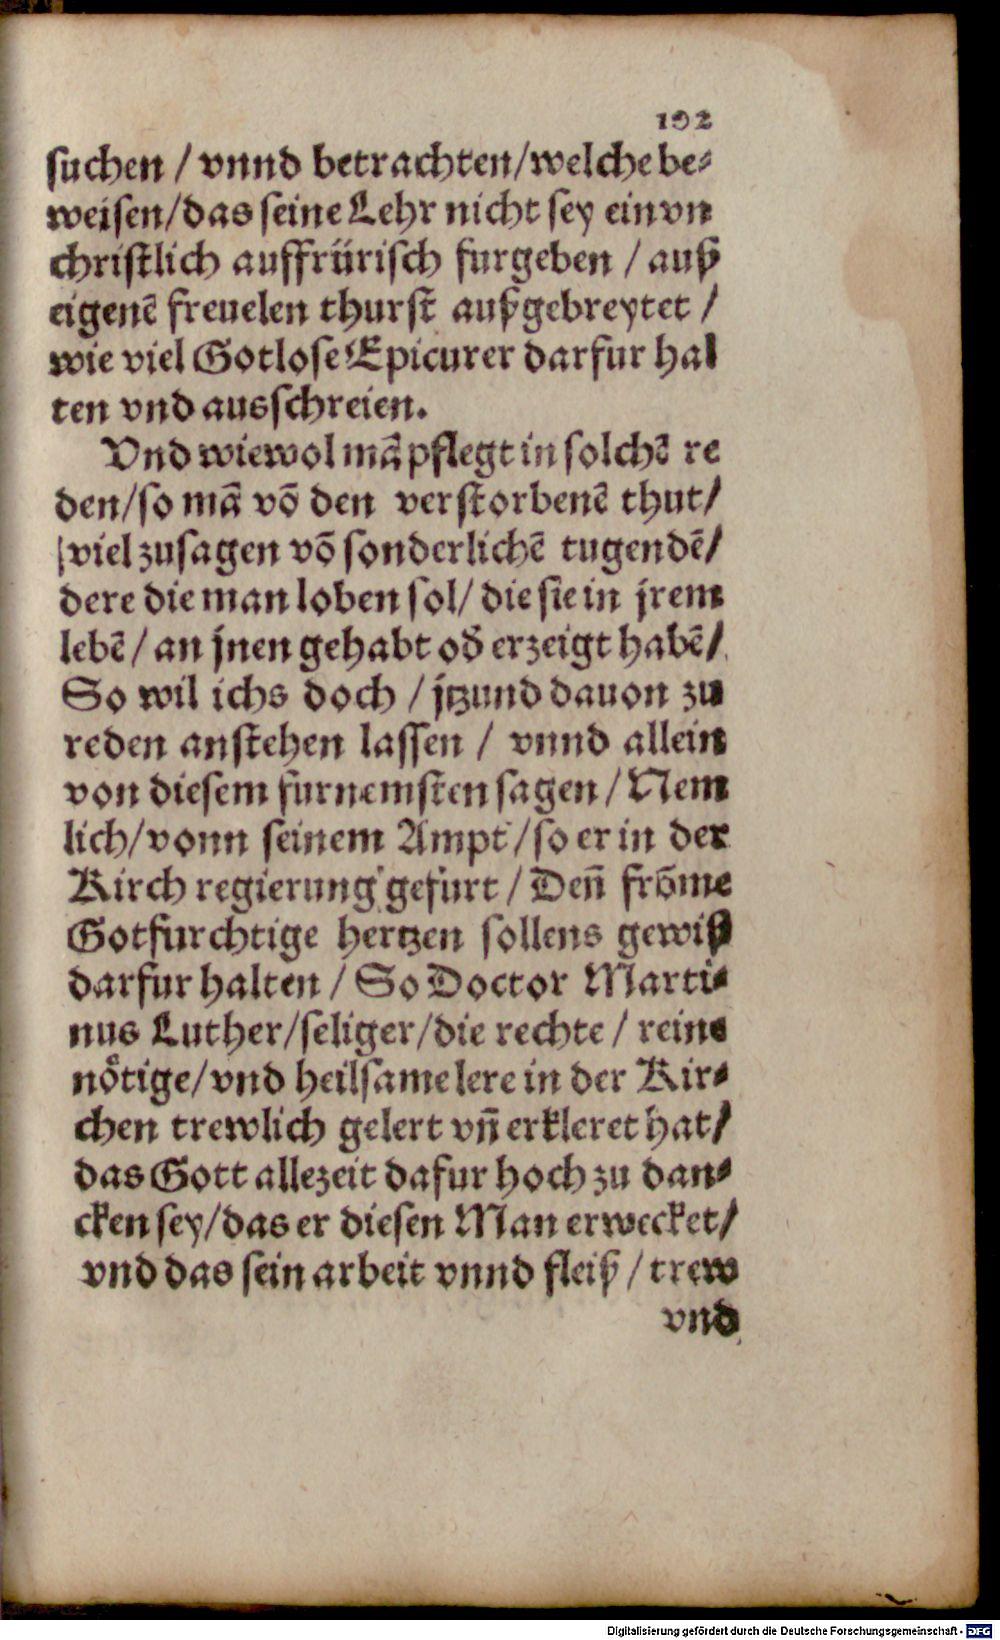 192
suchen / vnnd betrachten/welche be⸗
weisen/das seine Lehr nicht sey ein vn
christlich auffrürisch furgeben / auß
eigenē freuelen thurst außgebreytet /
wie viel Gotlose Epicurer darfur hal
ten vnd ausschreien.
Vnd wiewol mā pflegt in solchē re
den/so mā vō den verstorbenē thut/
viel zusagen vō sonderlichē tugendē/
dere die man loben sol/ die sie in jrem
lebē/ an jnen gehabt oď erzeigt habē/
So wil ichs doch / jtzund dauon zu
reden anstehen lassen / vnnd allein
von diesem furnemsten sagen / Nem
lich/vonn seinem Ampt /so er in der
Kirch regierung gefurt / Deñ frōme
Gotfurchtige hertzen sollens gewiß
darfur halten / So Doctor Marti⸗
nus Luther/seliger/die rechte / reine
nötige/vnd heilsame lere in der Kir⸗
chen trewlich gelert vñ erkleret hat/
das Gott allezeit dafur hoch zu dan⸗
cken sey/das er diesen Man erwecket/
vnd das sein arbeit vnnd fleiß / trew
vnd
Digitalisierung gefördert durch die Deutsche Forschungsgemeinschaft - DFG